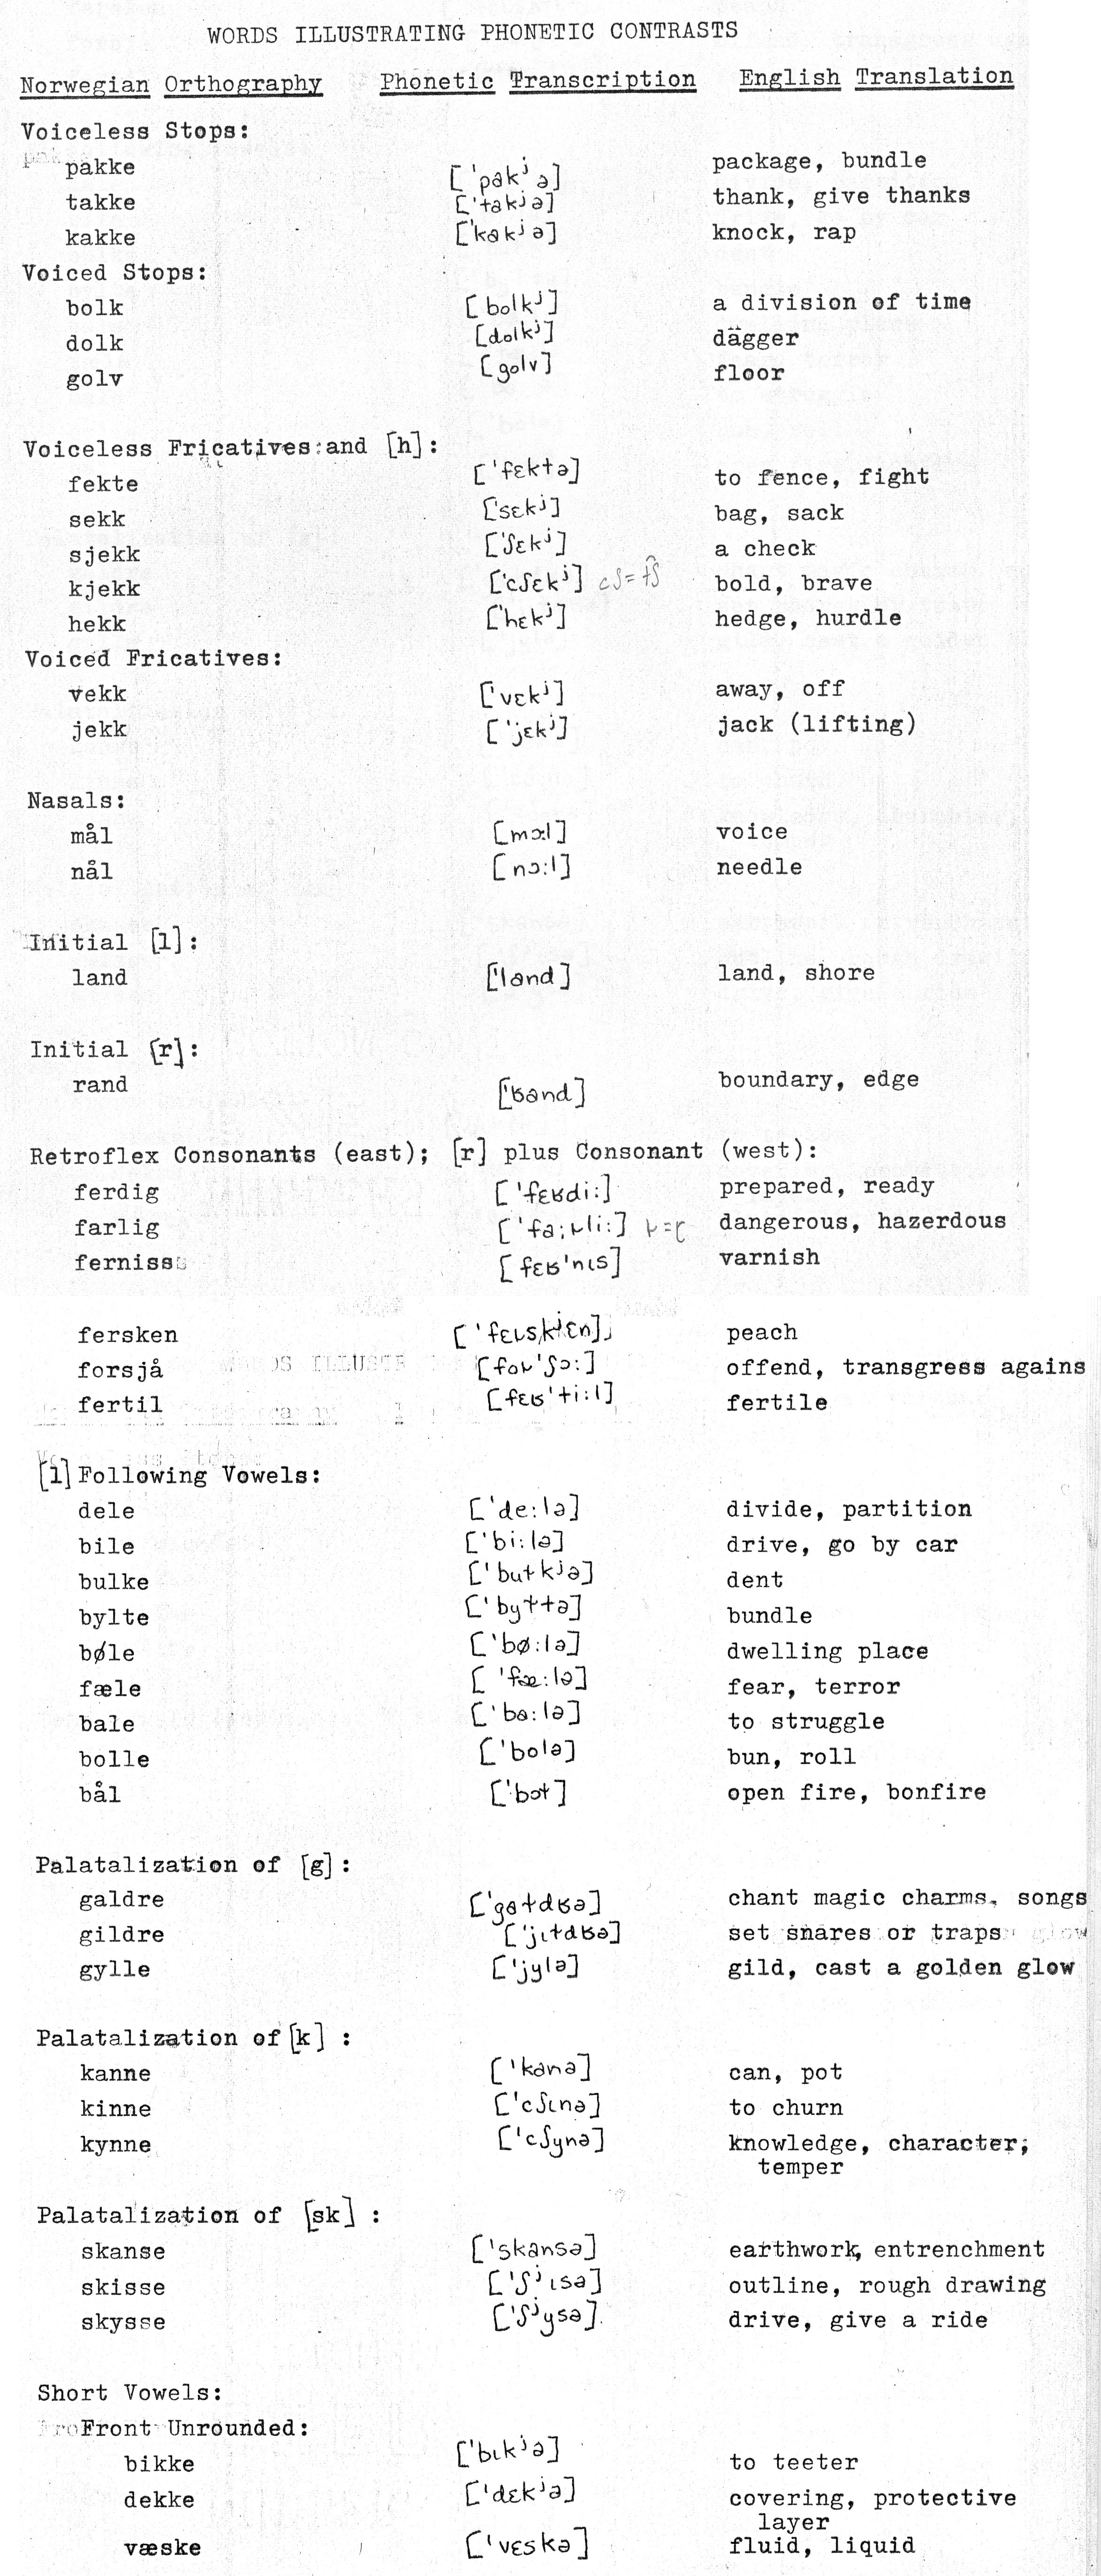 WORDS ILLUSTRATING PHONETIC CONTRASTS
Norwegian Orthography Phonetic Transcription English Translation
Voiceless Stops:
pakke ['pakʲə] package, bundle
takke ['takʲə] thank, give thanks
kakke ['kakʲə] knock, rap
Voiced Stops:
bolk [bolkʲ] a division of time
dolk [dolkʲ] dägger
golv [golv] floor
Voiceless Fricatives and [h]:
fekte ['fɛktə] to fence, fight
sekk ['sɛkʲ] bag, sack
sjekk ['ʃɛkʲ] a check
kjekk ['cʃɛkʲ] cʃ = t͡ʃ bold, brave
hekk ['hɛkʲ] hedge, hurdle
Voiced Fricatives:
vekk ['vɛkʲ] away, off
jekk ['jɛkʲ] jack (lifting)
Nasals:
mål [mɔ:l] voice
nål [nɔ:l] needle
Initial [l]:
land ['land] land, shore
Initial [r]:
rand ['ʁand] boundary, edge
Retroflex Consonants (east); [r] plus Consonant (west):
ferdig ['fɛʁdi:] prepared, ready
farlig dangerous, hazerdous
ferniss [fɛʁ'nɩs] varnish
fersken peach
forsjå offend, transgress agains
fertil [fɛʁ'ti:l] fertile
[l] Following Vowels:
dele ['de:lə] divide, partition
bile ['bi:lə] drive, go by car
bulke ['buɫkʲə] dent
bylte ['byɫtə] bundle
bøle ['bø:lə] dwelling place
fæle ['fæ:lə] fear, terror
bale ['ba:lə] to struggle
bolle ['bolə] bun, roll
bål ['bɔɫ] open fire, bonfire
Palatalization of [g]:
galdre ['gaɫdʁə] chant magic charms, songs
gildre ['jɩɫdʁə] set snares or traps
gylle ['jylə] gild, cast a golden glow
Palatalization of [k] :
kanne ['kanə] can, pot
kinne ['cʃɩnə] to churn
kynne ['cʃynə] knowledge, character;
temper
Palatalization of [sk] :
skanse ['skansə] earthwork, entrenchment
skisse ['ʃʲɩsə] outline, rough drawing
skysse ['ʃʲysə] drive, give a ride
Short Vowels:
Front Unrounded:
bikke ['bɩkʲə] to teeter
dekke ['dɛkʲə] covering, protective
layer
væske ['vɛskə] fluid, liquid